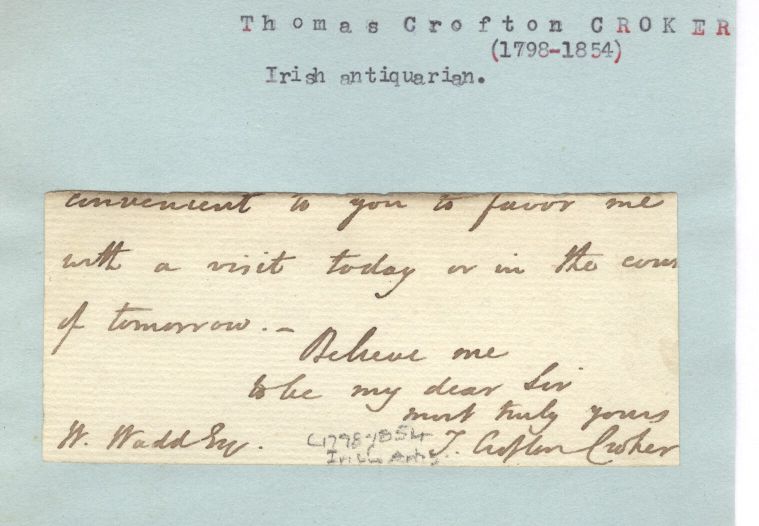 Thomas Crofton CROKER
(1798-1854)
Irish antiquarian.
convenient to you to favor me
with a visit today or in the cours
of tomorrow. –
Believe me
to be my dear Sir
most truly yours
W. Wadd Esq.
(1798-1854
Irish Antiq.
T. Crofton Croker